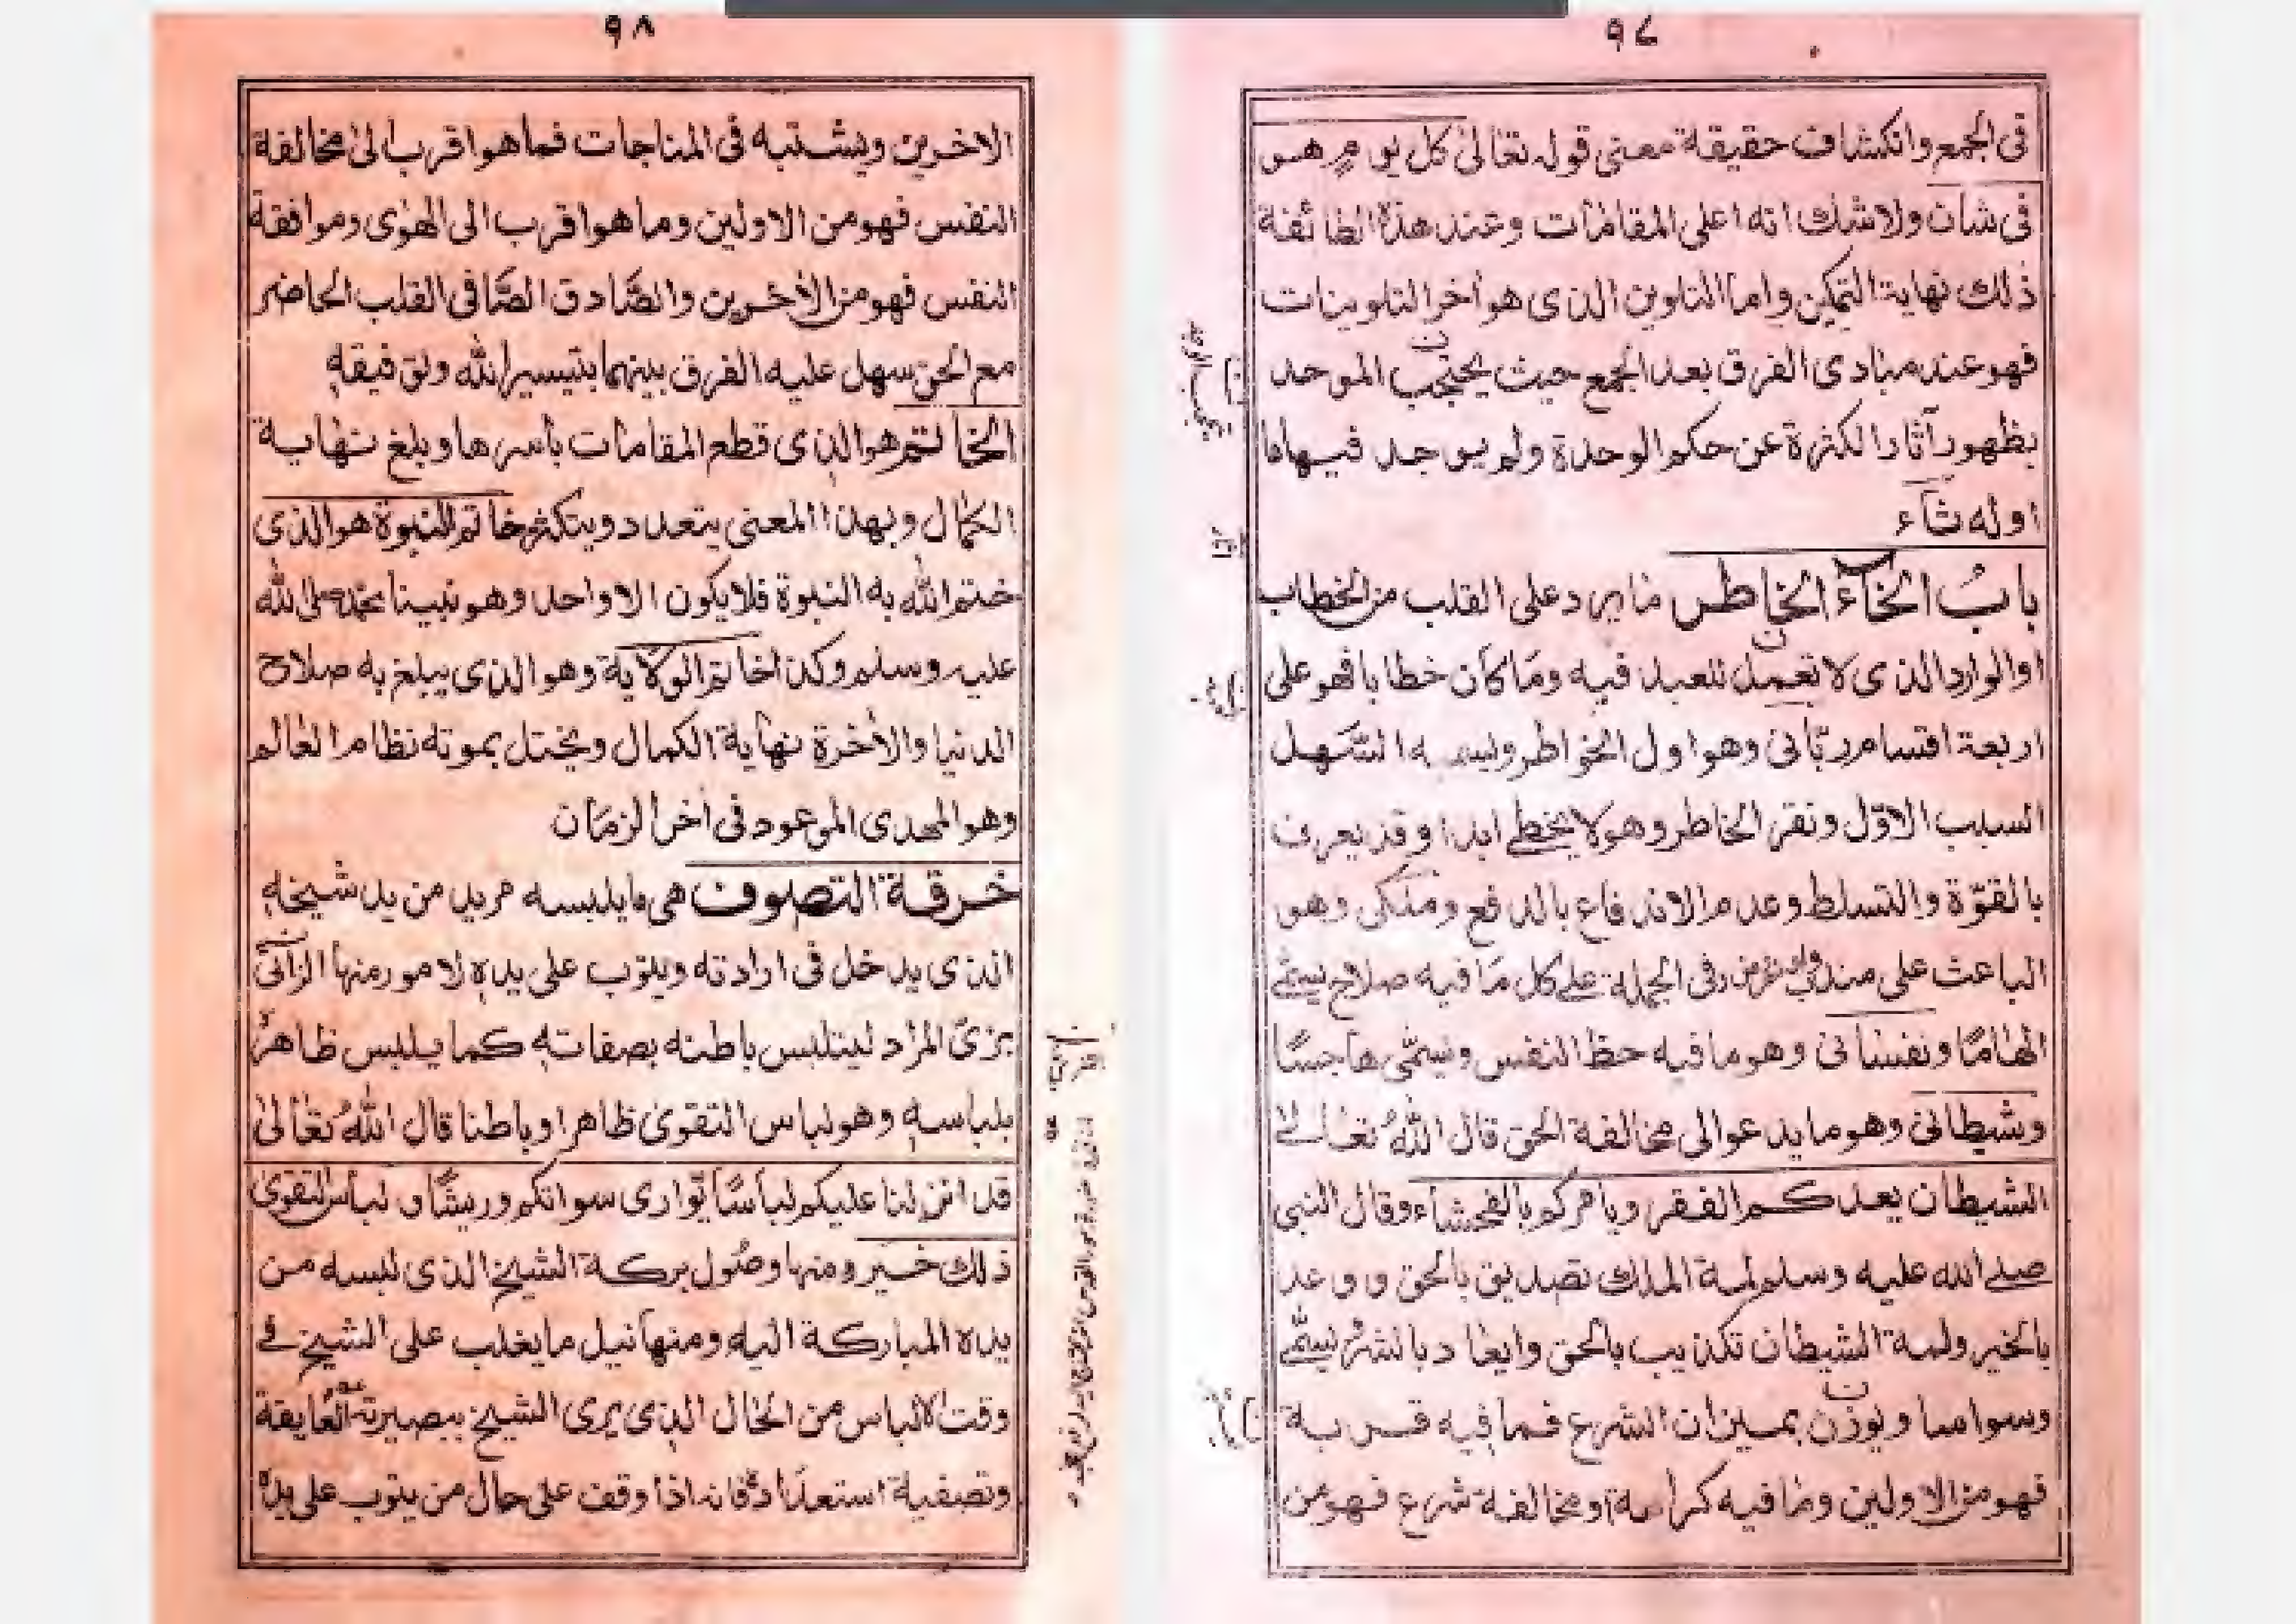 ٩٧
فى الجمع وانكشاف حقيقة معنى قوله تعالىٰ كل يوم هو
فى شان ولاشك انه اعلى المقامات وعند هذة الطائفة
ذلك نهاية التمكين واما التلوين الذى هو أخر التلوينات
فهو عند مبادى الفرق بعد الجمع حيث يحتجب الموحد
بظهور آثار الكثرة عن حكم الوحدة ولم يوجد فيها ما
اوله ثآء
بابُ الخآء الخاطر ما يرد على القلب من الخطاب
او الوارد الذى لا تعمل للعبد فيه وما كان خطابا فهو على
اربعة اقسام ربّانى وهو اول الخواطر ويسميه السّهل
السبب الاوّل ونقر الخاطر وهو لا يخطے ابدا وقد يعرف
بالقوّة والتسلط وعدم الاندفاع بالدفع وملكى وهو
الباعث على مندوب او مفروض وفى الجملة علے كل ما فيه صلاح يسمّے
الهامًا ونفسانى وهو ما فيه حظ النفس ويسمّى هاجسًا
وشيطانى وهو ما يدعوا الى مخالفة الحق قال اللّٰهُ تعالىٰ
الشيطان يعدكم الفقر ويأمركم بالفحشاء وقال النبى
صلے الله عليه وسلم لمة الملك تصديق بالحق ووعد
بالخير ولمة الشيطان تكذيب بالحق وايعاد بالشرّ يسمّے
وسواسا ويوزن بميزان الشرع فما فيه قربة
فهو من الاولين وما فيه كراهة او مخالفة شرع فهو من
٩٨
الاخرين ويشتبه فى المناجات فما هو اقرب الىٰ مخالفة
النفس فهو من الاولين وما هو اقرب الى الهوٰى وموافقة
النفس فهو من الأخرين والصّادق الصّافى القلب الحاضر
مع الحق سهل عليه الفرق بينهما بتيسير اللّٰه وتوفيقه
الخاتم هو الذى قطع المقامات بأسرها وبلغ نهاية
الكمال وبهذا المعنى يتعدد ويتكثر خاتم النبوة هو الذى
ختم اللّٰه به النبوة فلا يكون الا واحد وهو نبينا محمد صلى اللّٰه
عليه وسلم وكذا خاتم الولاية وهو الذى يبلغ به صلاح
الدنيا والأخرة نهاية الكمال ويختل بموته نظام العالم
وهو المهدى الموعود فى أخر الزمان
خرقة التصوف هى ما يلبسه مريد من يد شيخه
الذى يدخل فى ارادته ويتوب على يده لامور منها الزآئى
بزىّ المراد ليتلبس باطنه بصفاته كما يلبس ظاهرٗ
بلباسه وهو لباس التقوىٰ ظاهرا وباطنا قال اللّٰهُ تعالىٰ
قد انزلنا عليكم لباسًا يّوارى سوآتكم وريشًا و لباس التقوىٰ
ذلك خير ومنها وصول بركة الشيخ الذى لبسه من
يده المباركة اليه ومنها نيل ما يغلب على الشيخ فے
وقت الالباس من الحال الذى يرى الشيخ ببصيرته
وتصفية استعدادهٗ فانه اذا وقف على حال من يتوب على يدهٗ